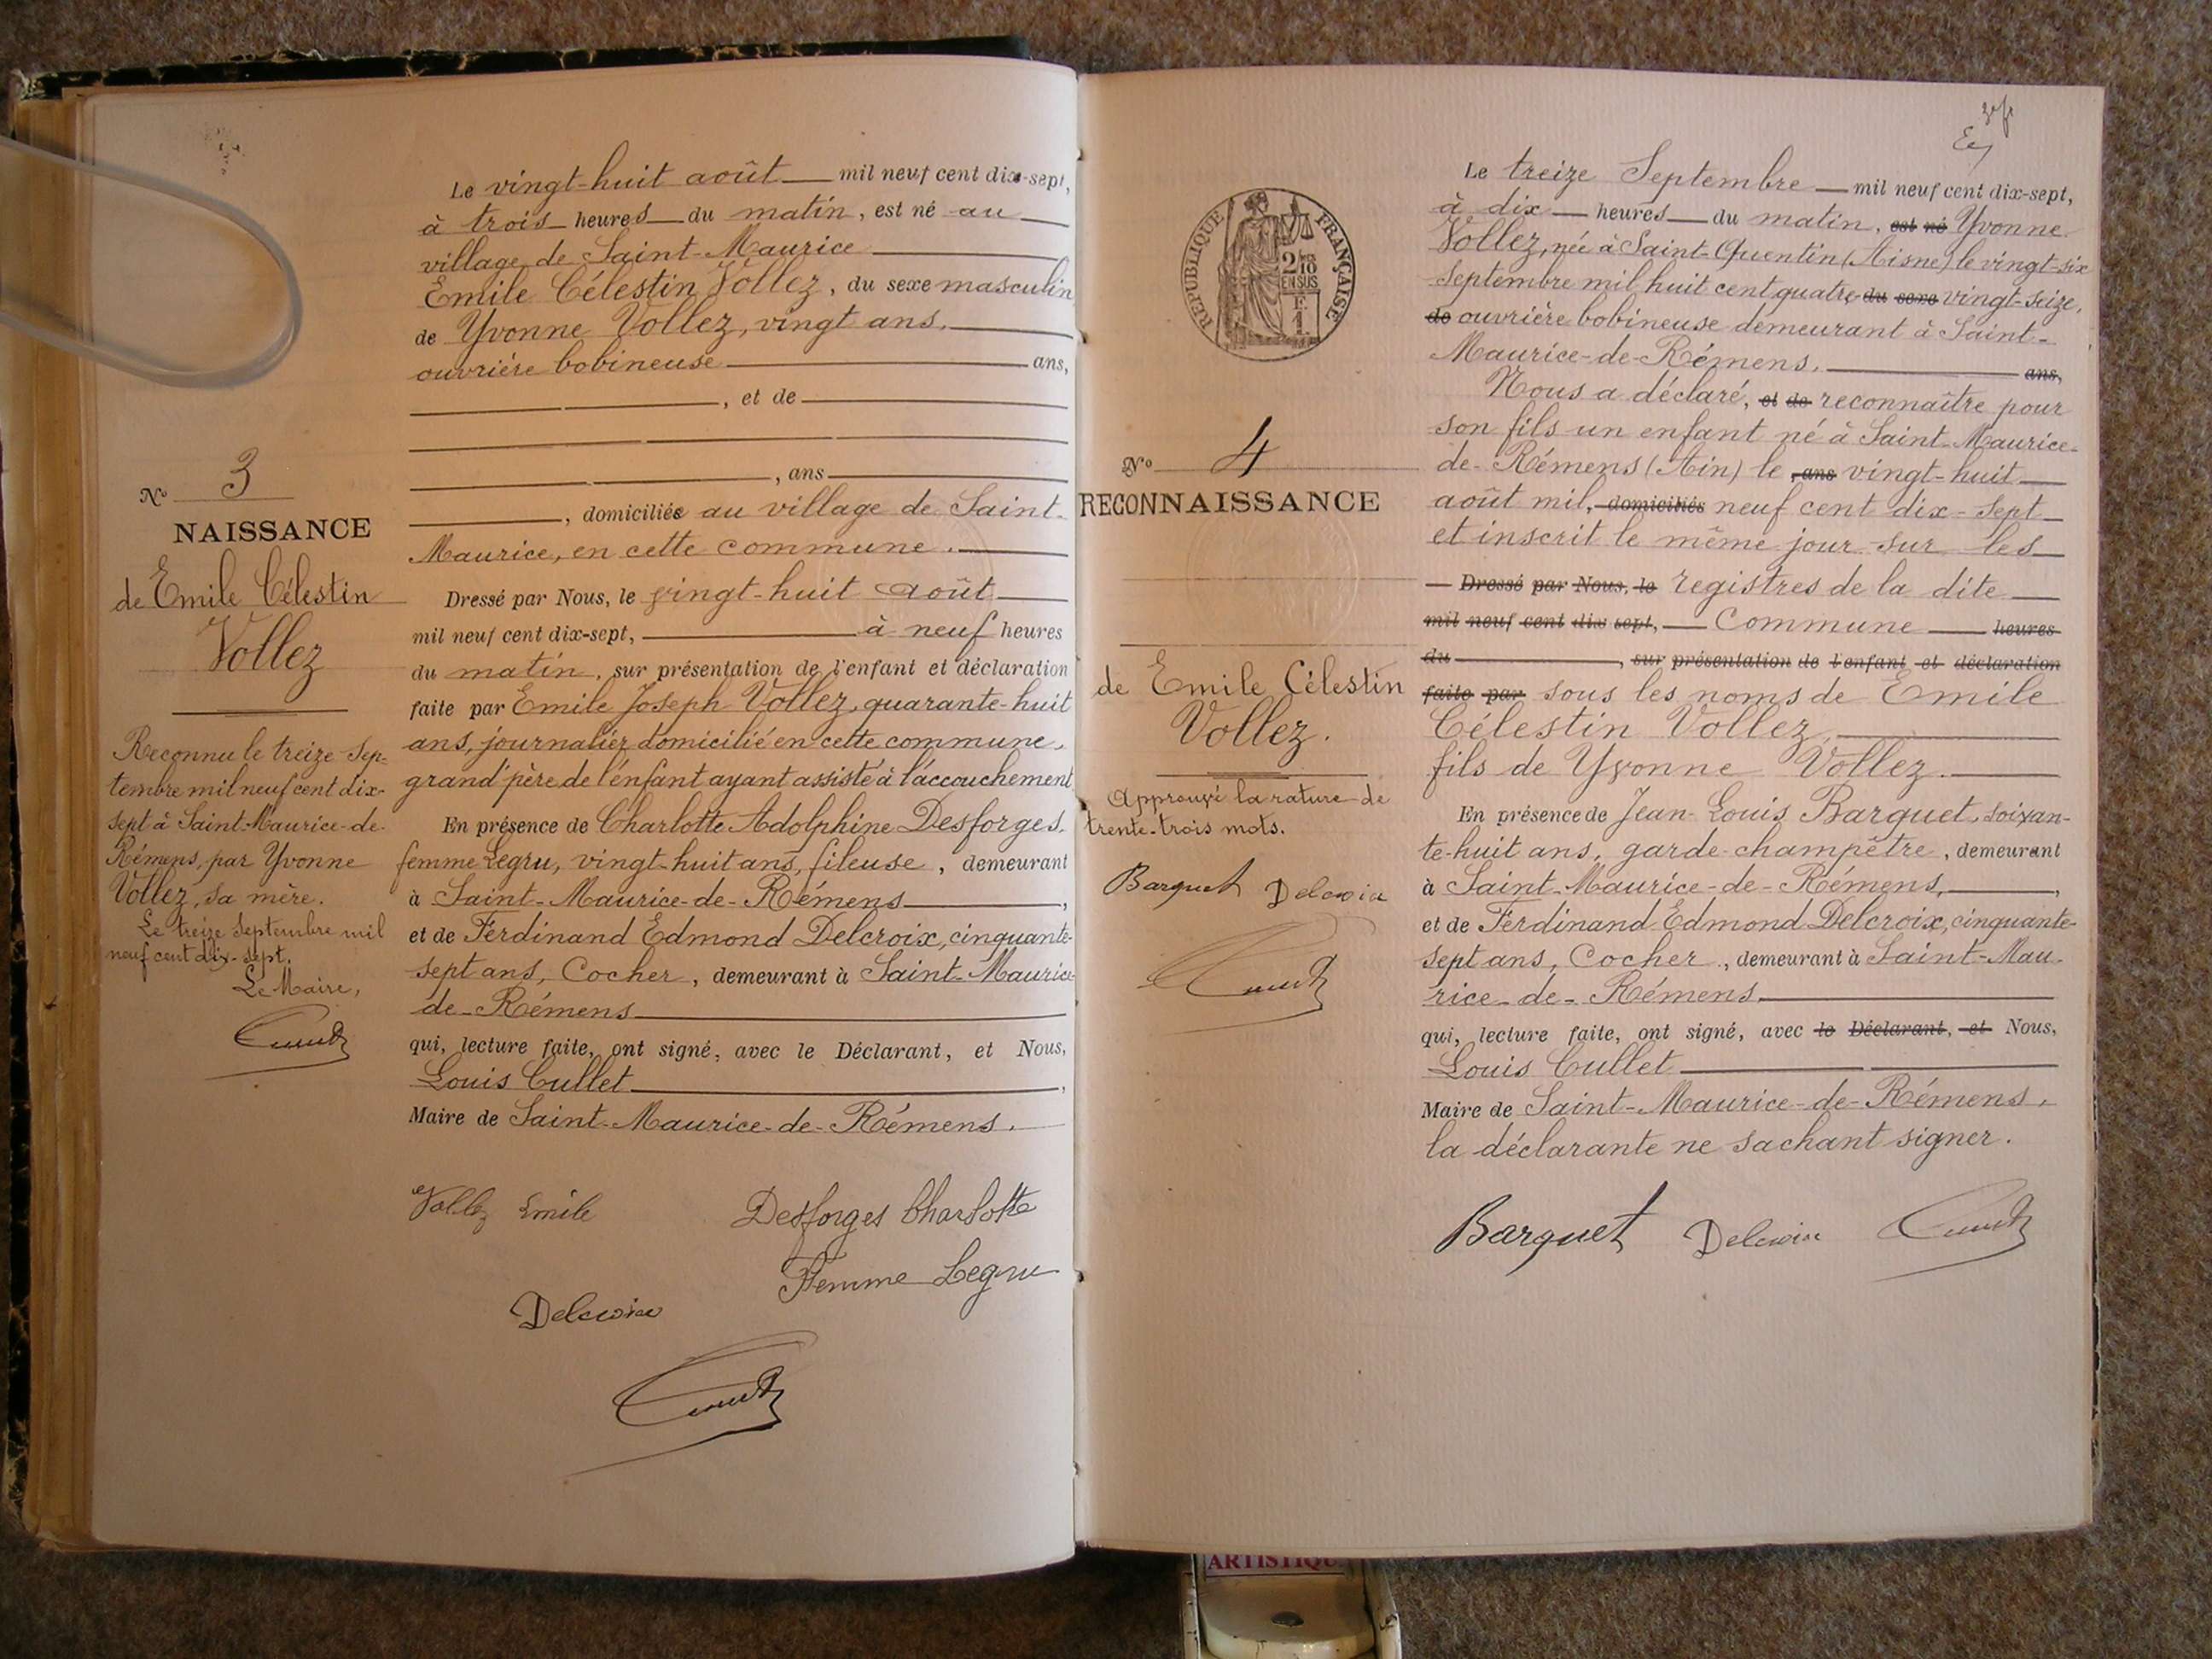 Le vingt-huit août mil neuf cent dix-sept,
à trois heures du matin, est né au
village de Saint-Maurice
Emile Célestin Vollez, du sexe masculin
de Yvonne Vollez, vingt ans,
ouvrière bobineuse ans,
, et de
, ans
, domiciliée au village de Saint-
Maurice, en cette commune.
Dressé par Nous, le vingt-huit août
mil neuf cent dix-sept, à neuf heures
du matin, sur présentation de l'enfant et déclaration
faite par Emile Joseph Vollez, quarante-huit
ans, journalier domicilié en cette commune,
grand'père de l'enfant ayant assisté à l'accouchement
En présence de Charlotte Adolphine Desforges,
femme Legru, vingt-huit ans, fileuse, demeurant
à Saint-Maurice-de-Rémens,
et de Ferdinand Edmond Delcroix, cinquante-
sept ans, Cocher, demeurant à Saint-Maurice-
de-Rémens
qui, lecture faite, ont signé, avec le Déclarant, et Nous,
Louis Cullet,
Maire de Saint-Maurice-de-Rémens.
Vollez Emile
Desforges Charlotte
Femme Legru
Delcroix
No 3
NAISSANCE
de Emile Célestin
Vollez
Reconnu le treize Sep-
tembre mil neuf cent dix-
sept à Saint-Maurice-de-
Rémens, par Yvonne
Vollez, sa mère.
Le treize Septembre mil
neuf cent dix-sept.
Le Maire,
REPUBLIQUE FRANÇAISE
2/10
EN SUS
F
1
No 4
RECONNAISSANCE
de Emile Célestin
Vollez.
Approuvé la rature de
trente-trois mots.
Barquet Delcroix
Le treize Septembre mil neuf cent dix-sept,
à dix heures du matin, est né Yvonne
Vollez, née à Saint-Quentin (Aisne) le vingt-six
Septembre mil huit cent quatre du sexe vingt-seize,
de ouvrière bobineuse demeurant à Saint-
Maurice-de-Rémens. ans,
Nous a déclaré, et de reconnaître pour
son fils un enfant né à Saint-Maurice-
de-Rémens (Ain) le , ans vingt-huit
août mil, domiciliés neuf cent dix-sept
et inscrit le même jour sur les
Dressé par Nous, le registres de la dite
mil neuf cent dix sept, Commune heures
du , sur présentation de l'enfant et déclaration
faite par sous les noms de Emile
Célestin Vollez,
fils de Yvonne Vollez.
En présence de Jean-Louis Barquet, soixan-
te-huit ans, garde-champêtre, demeurant
à Saint-Maurice-de-Rémens,
et de Ferdinand Edmond Delcroix, cinquante-
sept ans, Cocher, demeurant à Saint-Mau-
rice-de-Rémens
qui, lecture faite, ont signé, avec le Déclarant, et Nous,
Louis Cullet
Maire de Saint-Maurice-de-Rémens,
la déclarante ne sachant signer.
Barquet Delcroix
ARTISTIQU